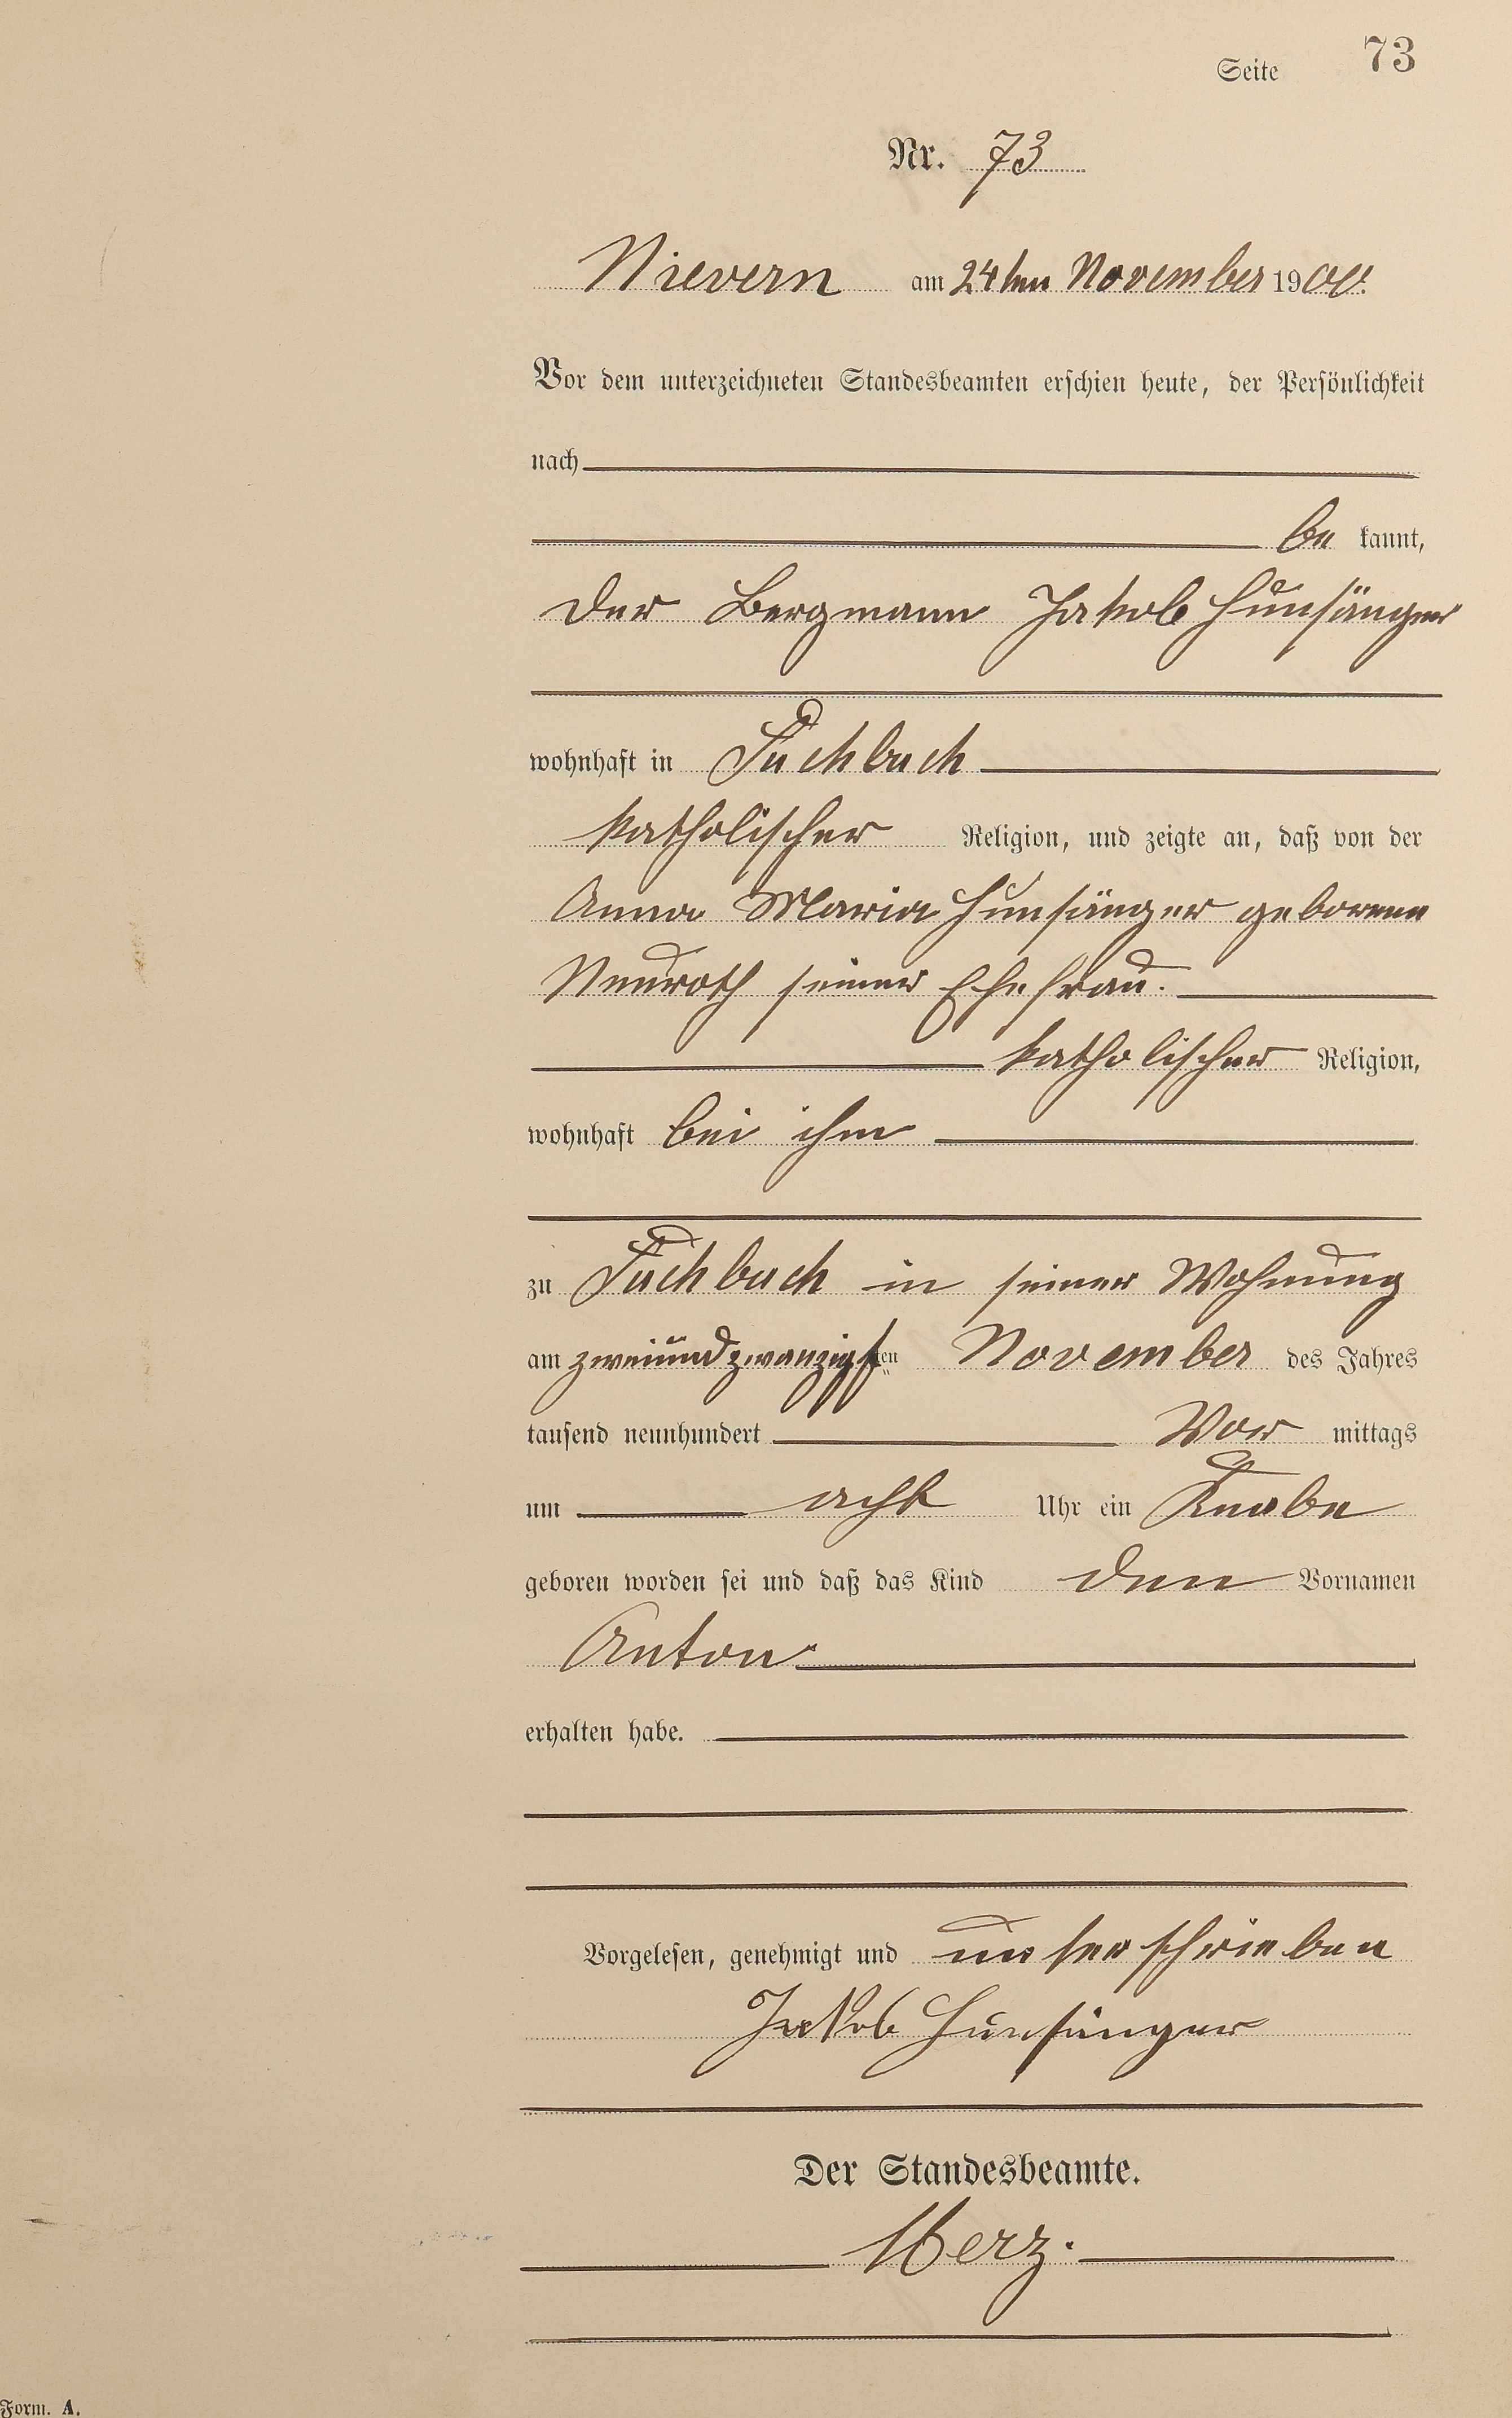 Seite 73
Nr. 73
Nievern am 24ten November 1900.
Vor dem unterzeichneten Standesbeamten erschien heute, der Persönlichkeit
nach
be kannt,
der Bergmann Jakob Hunsänger
wohnhaft in Fachbach
katholischer Religion, und zeigte an, daß von der
Anna Maria Hunsänger geborene
Neuroth seiner Ehefrau.
katholischer Religion,
wohnhaft bei ihm
zu Fachbach in seiner Wohnung
am zweiundzwanzigsten November des Jahres
tausend neunhundert Vor mittags
um acht Uhr ein Knabe
geboren worden sei und daß das Kind den Vornamen
Anton
erhalten habe.
Vorgelesen, genehmigt und unterschrieben
Jakob Hunsänger
Der Standesbeamte.
Merz.
Form. A.